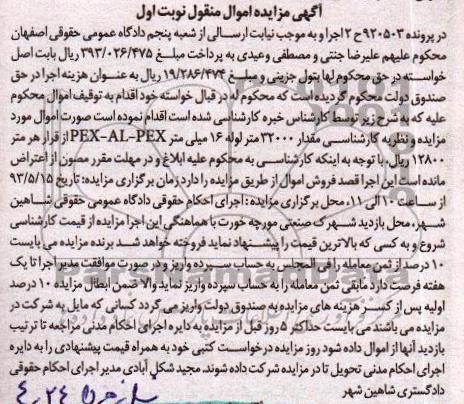 آگهی مزایده اموال منقول نوبت اول
در پرونده ۹۲۰۵۰۳ ح ۲ اجرا و به موجب نیابت ارسالی از شعبه پنجم دادگاه عمومی حقوقی اصفهان
محکوم علیهم علیرضا جنتی و مصطفی وعیدی به پرداخت مبلغ ۳۹۳/۰۲۶/۴۷۵ ریال بابت اصل
خواسته در حق محکوم لها بتول جزینی و مبلغ ۱۹/۲۸۶/۴۷۴ ریال به عنوان هزینه اجرا در حق
صندوق دولت محکوم گردیده است که محکوم له در قبال خواسته خود اقدام به توقیف اموال محکوم
علیه که به شرح زیر توسط کارشناس خبره کارشناسی شده است اقدام نموده است صورت اموال مورد
مزایده و نظریه کارشناسی مقدار ۳۲۰۰۰ متر لوله ۱۶ میلی متر PEX-AL-PEX از قرار هر متر
۱۲۸۰۰ ریال، با توجه به اینکه کارشناسی به محکوم علیه ابلاغ و در مهلت مقرر مصون از اعتراض
مانده است این اجرا قصد فروش اموال از طریق مزایده را دارد زمان برگزاری مزایده: تاریخ ۹۳/۵/۱۵
از ساعت ۱۰ الی ۱۱، محل برگزاری مزایده: اجرای احکام حقوقی دادگاه عمومی حقوقی شاهین
شهر، محل بازدید شهرک صنعتی مورچه خورت با هماهنگی این اجرا مزایده از قیمت کارشناسی
شروع و به کسی که بالاترین قیمت را پیشنهاد نماید فروخته خواهد شد برنده مزایده می بایست
۱۰ درصد از ثمن معامله را فی المجلس به حساب سپرده واریز و در صورت موافقت مدیر اجرا تا یک
هفته فرصت دارد مابقی ثمن معامله را به حساب سپرده واریز نماید والا ضمن ابطال مزایده ۱۰ درصد
اولیه پس از کسر هزینه های مزایده به صندوق دولت واریز می گردد کسانی که مایل به شرکت در
مزایده می باشند می بایست حداکثر ۵ روز قبل از مزایده به دایره اجرای احکام مدنی مراجعه تا ترتیب
بازدید آنها از اموال داده شود روز مزایده درخواست کتبی خود به همراه قیمت پیشنهادی را به دایره
اجرای احکام مدنی تحویل تا در مزایده شرکت داده شوند. مجید شکل آبادی مدیر اجرای احکام حقوقی
دادگستری شاهین شهر
۴،۲۴